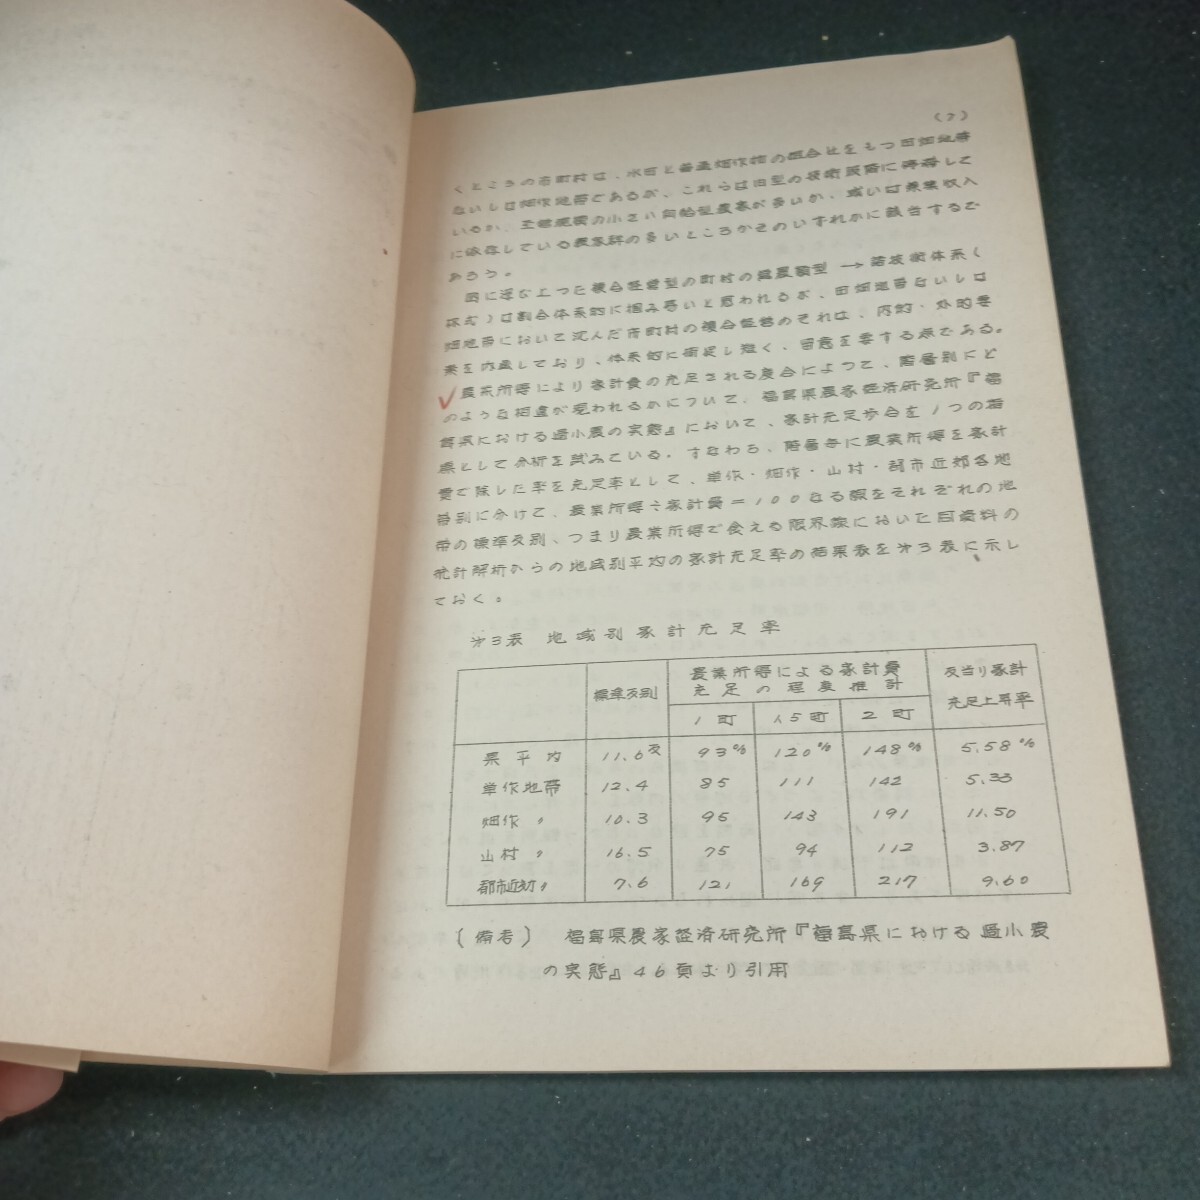 (7)
くところの市町村は、水田と普通畑作物の組合せをもつ田畑地帯
ないしは畑作地帯であるが、これらは旧型の技術段階に停滞して
いるか、規模の小さい自給型農家が多いか、或いは兼業収入
に依存している農家群の多いところかそのいずれかに該当するで
あろう。
因に浮び上つた複合経営型の町村の営農類型→技術体系(
様式)は割合体系的に掴み易いと思われるが、田畑地帯ないしは
畑地帯において沈んだ市町村の複合経営のそれは、内的・外的要
素を内蔵しており、体系的に捕捉し難く、留意を要する点である。
農業所得により家計費の充足される度合によつて、階層別にど
のような相違が現われるかについて、福島県農家経済研究所『福
島県における過小農の実態』において、家計充足歩合を1つの指
標として分析を試みている。すなわち、階層毎に農業所得を家計
費で除した率を充足率として、単作・畑作・山村・都市近郊各地
帯別に分けて、農業所得÷家計費=100なる線をそれぞれの地
帯の標準反別、つまり農業所得で食える限界線においた同資料の
統計解析からの地域別平均の家計充足率の結果表を第3表に示し
ておく。
第3表 地域別家計充足率
標準反別 農業所得による家計費充足の程度推計 反当り家計充足上昇率
1町 1.5町 2町
県平均 11.6反 93% 120% 148% 5.58%
単作地帯 12.4 85 111 142 5.33
畑作〃 10.3 95 143 191 11.50
山村〃 16.5 75 94 112 3.87
都市近郊〃 7.6 121 169 217 9.60
(備考) 福島県農家経済研究所『福島県における過小農
の実態』46頁より引用